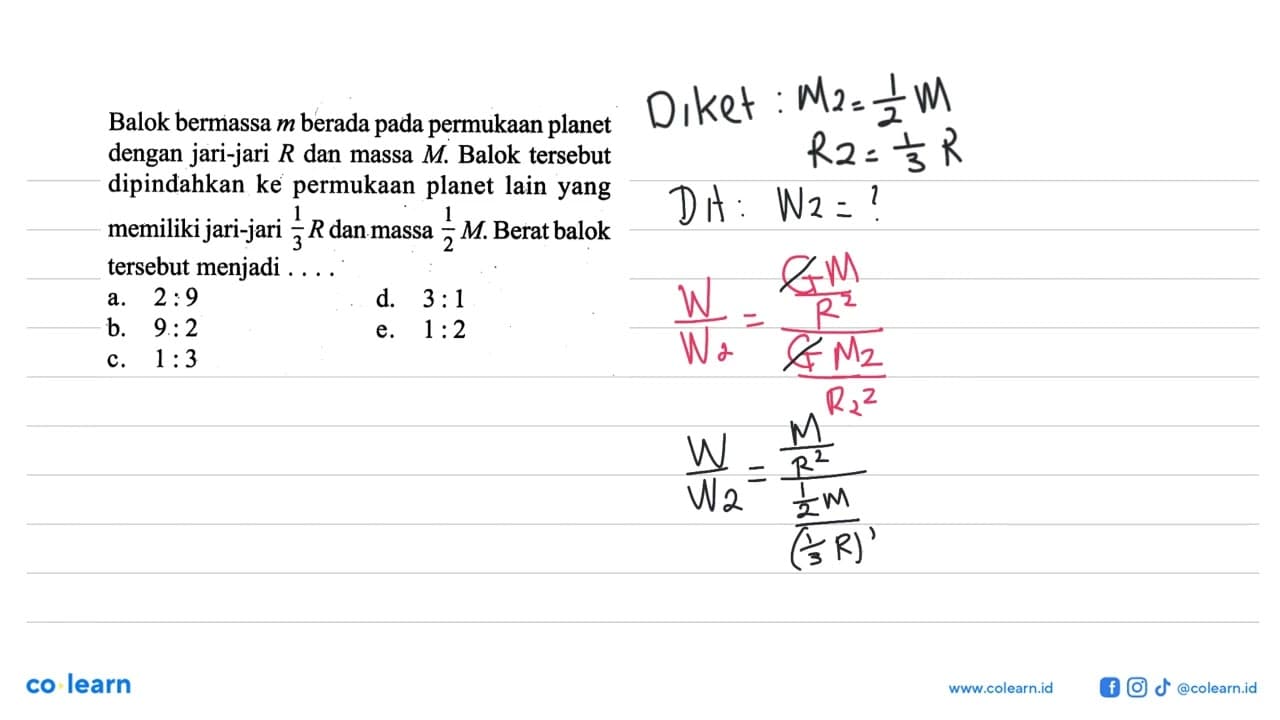 Balok bermassa m berada pada permukaan planet
dengan jari-jari R dan massa M. Balok tersebut
dipindahkan ke permukaan planet lain yang
memiliki jari-jari 1/3 R dan massa 1/2 M. Berat balok
tersebut menjadi . . . .
a. 2 : 9
b. 9 : 2
c. 1 : 3
d. 3 : 1
e. 1 : 2
Diket : M2 = 1/2 M
R2 = 1/3 R
Dit : W2 = ?
W/W2 = (GM/R²)/(G M2/R2²)
W/W2 = (M/R²)/(1/2 M/(1/3 R)²)
co learn
www.colearn.id
@colearn.id